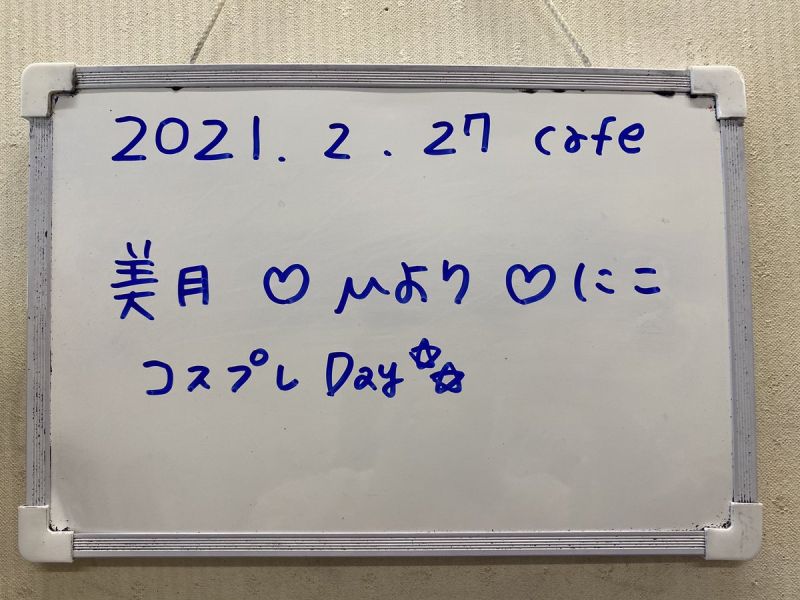 2021. 2. 27 cafe
美月 ♡ μより ♡ にこ
コスプレ Day ☆☆